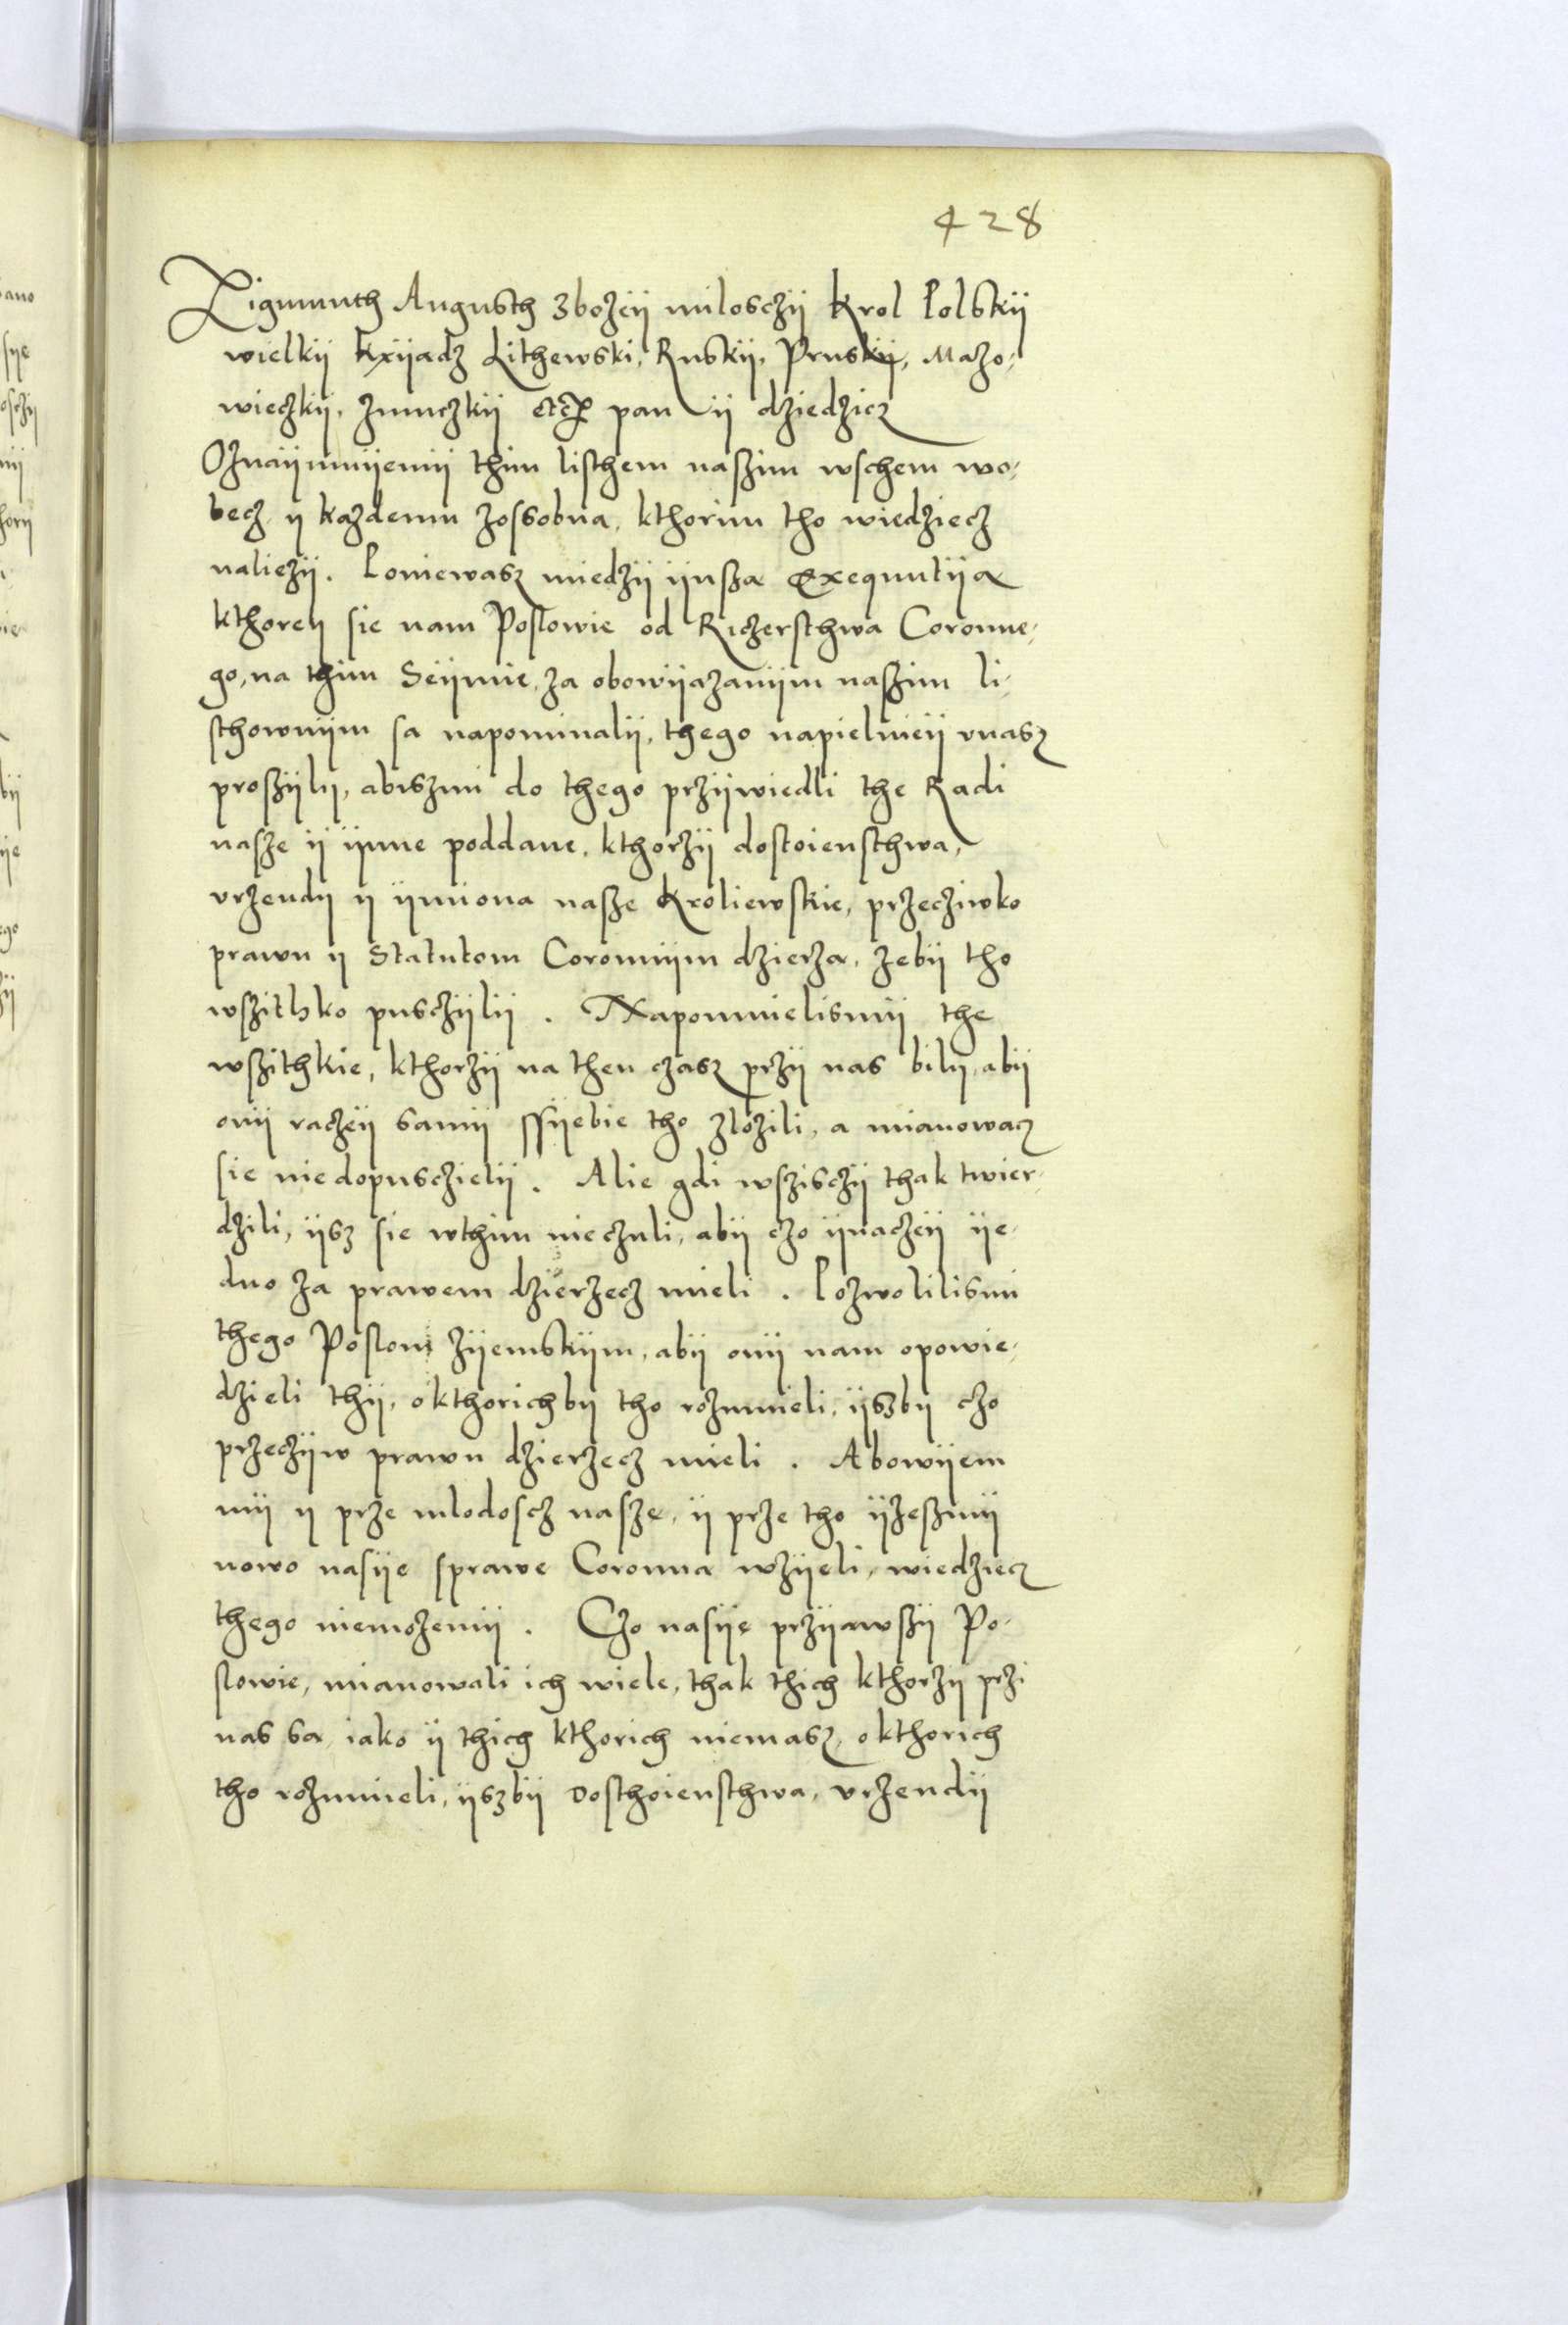 428
Zigmunth Augusth zbożeÿ miłosczÿ Krol Polskÿ
wielkÿ Kxÿadz Lithewski, Ruskÿ, Pruskÿ, Mazo-
wieczkÿ, zmuczkÿ etc pan ÿ dziedzicz
Oznaÿmuÿemÿ thim listhem naszim wschem wo-
becz y kazdemu zossobna, kthorim tho wiedziecz
należÿ. Poniewasz miedzÿ ÿnsza Exequutÿa
kthorey sie nam Poslowie od Riczersthwa Coronne-
go, na thim Seÿmie, za obowÿazanÿm naszim li-
sthownÿm sa napominalÿ, thego napielnieÿ vnasz
proszÿly, abiszmi do thego przÿwiedli the Radi
nasze ÿ ÿnne poddane, kthorzÿ dostoiensthwa,
vrzendy y ÿmiona nasze Kroliewskie, przecziwko
prawu y Statutom Coronnÿm dzierza, zebÿ tho
wszithko pusczÿlÿ. Napomnielismÿ the
wszithkie, kthorzÿ na then czasz przÿ nas bily, abÿ
onÿ raczeÿ samÿ ssÿebie tho złozili, a mianowacz
sie niedopusczielÿ. Alie gdi wszisczÿ thak twier-
dzili, ÿsz sie wthim nieczuli, abÿ czo ÿnaczeÿ ÿe-
dno za prawem dzierzecz mieli. Pozwolilismi
thego Poslom zÿemskÿm, abÿ onÿ nam opowie-
dzieli thÿ, okthorichby tho rozumieli, ÿszby czo
przeczÿw prawu dzierzecz mieli. Abowÿem
mÿ y prze mlodoscz nasze, ÿ prze tho ÿzeszmÿ
nowo nasÿe sprawe Coronna wzÿeli, wiedziecz
thego niemozemÿ. Czo nasÿe przÿawszÿ Po-
slowie, mianowali ich wiele, thak thich kthorzy przi
nas sa, iako ÿ thich kthorich niemasz, okthorich
tho rozumieli, ÿszbÿ dosthoiensthwa, vrzendÿ